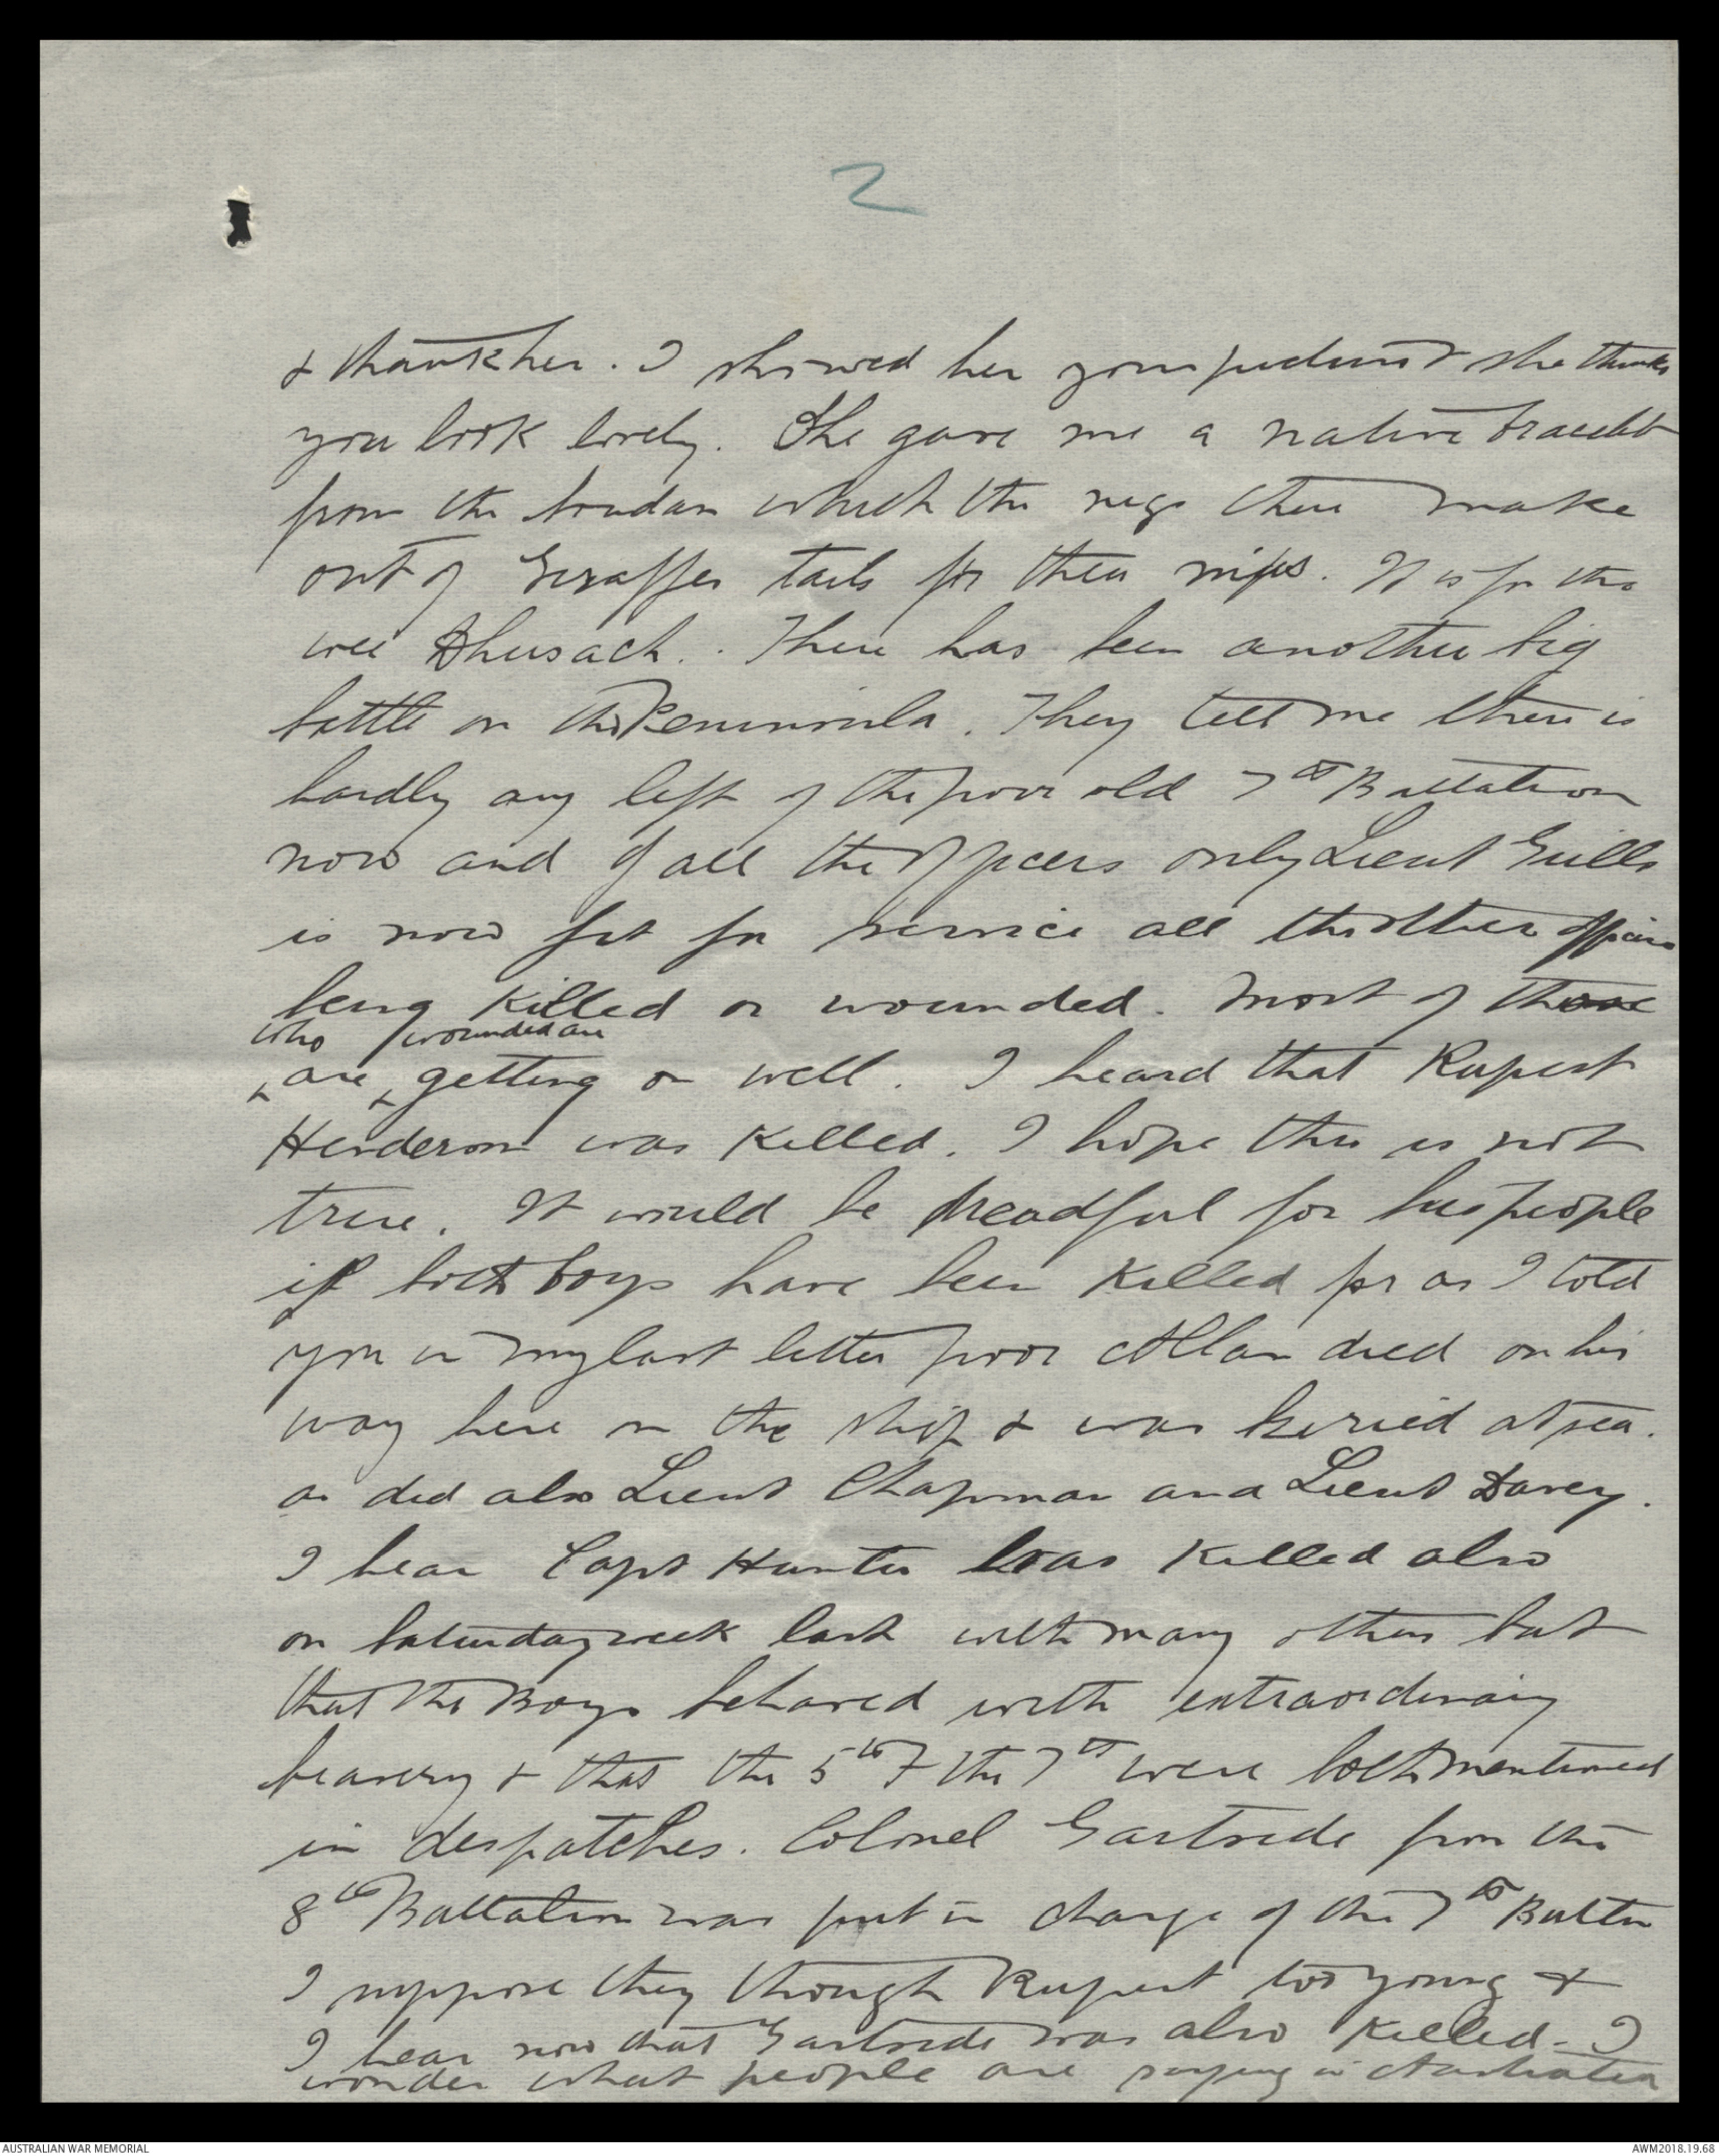 2
& thank her. I showed her your picture & she thinks
you look lovely. She gave me a native bracelet
from the Soudan which the nigs there make
out of Giraffes tails for their
wee Bhusach. There has been another big
battle on the Peninsula. They tell me there is
hardly any left of the poor old 7th Battalion
now and of all the Officers only Lieut Grills
is now fit for service all the other officers
being killed or wounded. Most of those
who wounded are
are getting on well. I heard that Rupert
Henderson was killed. I hope this is not
true. It would be dreadful for his people
if both boys have been killed for as I told
you in my last letter poor Allan died on his
way here on the ship & was buried at sea.
as did also Lieut Chapman and Lieut Davey.
I hear Capt Hunter was killed also
on Saturday week last with many others but
that the Boys behaved with extraordinary
bravery & that the 5th & the 7th were both mentioned
in despatches. Colonel Gartside from the
8th Battalion was put in charge of the 7th Battn
I suppose they though Rupert too young &
I hear now that Gartside was also killed - I
wonder what people are saying in Australia
AUSTRALIAN WAR MEMORIAL
AWM2018.19.68